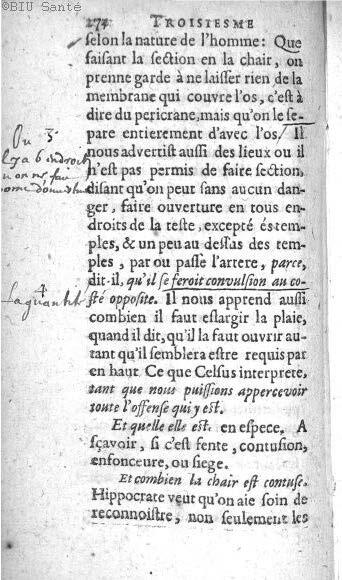 ©BIU Santé
274 TROISIESME
selon la nature de l'homme: Que
faisant la section en la chair, on
prenne garde à ne laisser rien de la
membrane qui couvre l'os, c'est à
dire du pericrane, mais qu'on le se-
pare entierement d'avec l'os. Il
nous advertist aussi des lieux ou il
n'est pas permis de faire section,
disant qu'on peut sans aucun dan-
ger, faire ouverture en tous en-
droits de la teste, excepté és tem-
ples, & un peu au dessus des tem-
ples, par ou passe l'artere, parce,
dit-il, qu'il se feroit convulsion au co-
sté opposite. Il nous apprend aussi
combien il faut eslargir la plaie,
quand il dit, qu'il la faut ouvrir au-
tant qu'il semblera estre requis par
en haut. Ce que Celsus interprete,
tant que nous puissions appercevoir
toute l'offense qui y est.
Et quelle elle est. en espece. A
sçavoir, si c'est fente, contusion,
enfonceure, ou siege.
Et combien la chair est contuse.
Hippocrate veut qu'on aie soin de
reconnoistre, non seulement les
3
4
La quantité